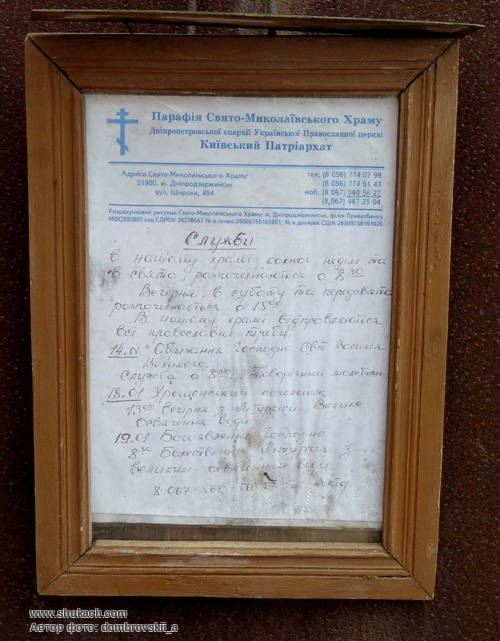 Парафія Свято-Миколаївського Храму
Дніпропетровської єпархії Української Православної церкві
Київський Патріархат
Адреса Свято-Миколаївського Храму:
51900, м. Дніпродзержинськ
вул. Широка, 494
тел; (8 056) 774 07 99
(8 056) 774 61 43
моб. (8 067) 560 56 27
(8,067) 987 25 04
Розрахунковий рахунок Свято-Миколаївського Храму: м. Дніпродзержинськ, філія ПриватБанку
МФО305965 код ЄДРПОУ 26238667 № в гривні 26006758161001; № в доларах США 26009758161020
Служби
в нашому храмі, кожної неділі та
в свята, розпочинаються о 8.30
Вечірня, в суботу та передсвята
розпочинається о 15.00
В нашому храмі відправляються
всі православні треби
14.01 Обрізання Господнє Свт. Василія
Великого.
Служба о 8.30 Новорічний молебень
18.01 Хрещенський сочельник
Вечірня з Літургією. Велике
Освячення води.
19.01 Богоявлення Господнє
8.30 Божественна Літургія з
великим освяченням води
8.067-560
www.shukach.com
Автор фото: dombrovskii_a